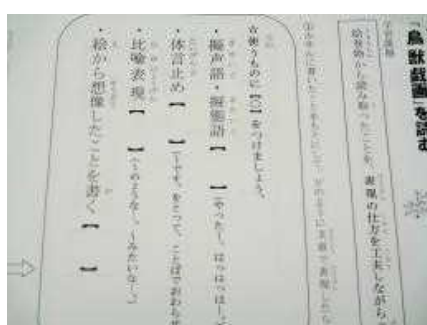 『鳥獣戯画』を読む
学習課題
絵巻物から読み取ったことを、表現の仕方を工夫しながら
☆使うものに【○】をつけましょう。
・擬声語・擬態語【　】(やったー。はっはっは…。
・体言止め【　】(~です。をとって、ことばでおわらせ
・比喩表現【　】(~のような~。~みたいな~。)
・絵から想像したことを書く【　】